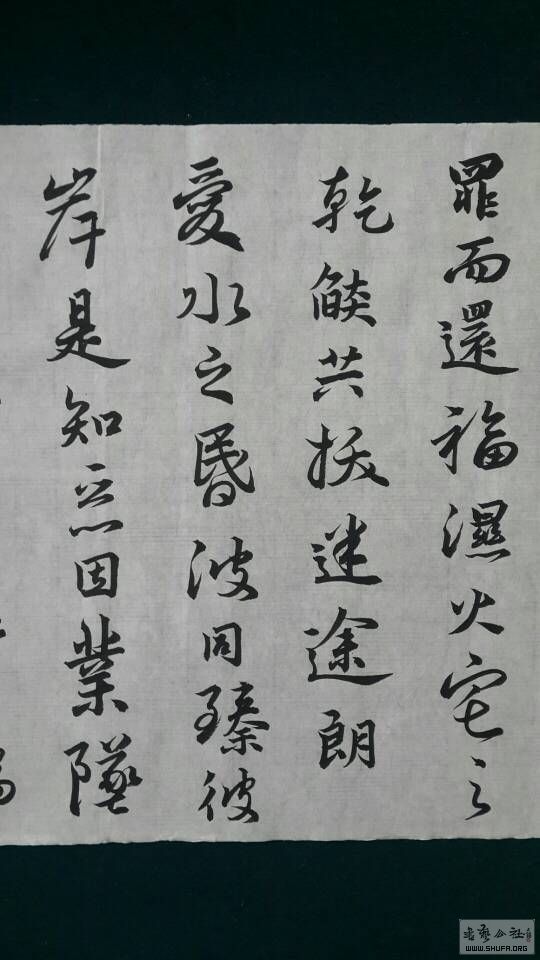 罪而還福濕火宅之
乾燄共拔迷途朗
愛水之昏波同臻彼
岸是知惡因業墜
書藝公社
WWW.SHUFA.ORG